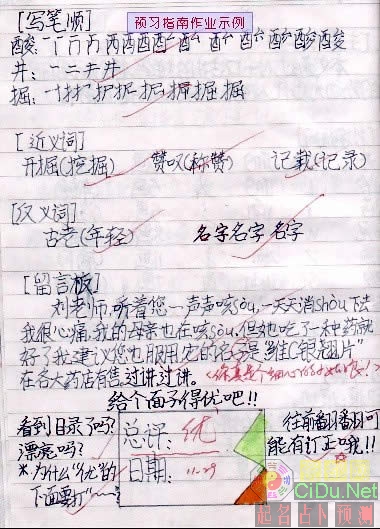 预习指南作业示例
[写笔顺]
井：一二丰井
掘：
[近义词]
开掘(挖掘) 赞叹(称赞) 记载(记录)
[反义词]
古老(年轻) 名字名字 名字
[留言板]
刘老师，听着您一声声咳sòu，一天天消shòu下去
我很心痛，我的母亲也在咳sòu，但她吃了一种药就
好了我建议您也服用它的名字是“维C银翘片”
在各大药店有售，过讲过讲。
给个面子得优吧!!
看到目录了吗?
漂亮吗?
*.为什么“优”的
下面要打“~~”?
总评：优
日期：11.29
往前翻翻可
能有订正哦!!
CiDu.Net
起名占卜预测